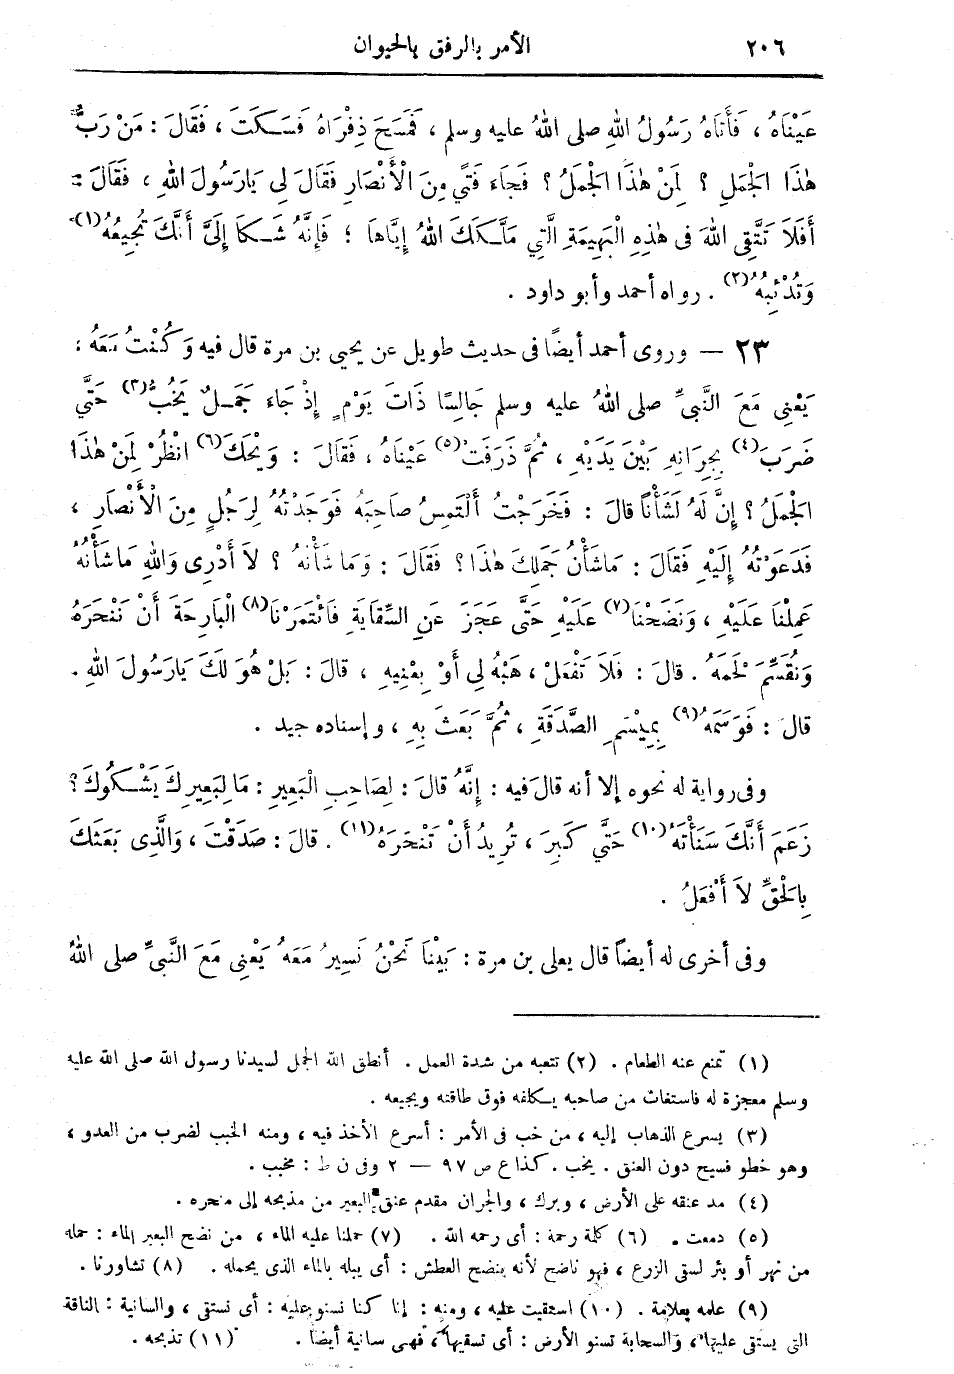 ٢٠٦ الأمر بالرفق بالحيوان
عَيْنَاهُ ، فَأَتَاهُ رَسُولُ اللهِ صلى اللهُ عليه وسلم ، فَمَسَحَ ذِفْرَاهُ فَسَكَتَ ، فَقَالَ : مَنْ رَبُّ
هٰذَا الْجَمَلِ ؟ لِمَنْ هٰذَا الْجَمَلُ ؟ فَجَاءَ فَتًى مِنَ الْأَنْصَارِ فَقَالَ لِي يَارَسُولَ اللهِ ، فَقَالَ :
أَفَلَا تَتَّقِى اللهَ فى هٰذِهِ الْبَهِيمَةِ الَّتِي مَلَّكَكَ اللهُ إِيَّاهَا ؛ فَإِنَّهُ شَكَا إِلَىَّ أَنَّكَ تُجِيعُهُ(١)
وَتُدْئِبُهُ(٢) . رواه أحمد وأبو داود .
٢٣ — وروى أحمد أيضًا فى حديث طويل عن يحيى بن مرة قال فيه وَكُنْتُ مَعَهُ :
يَعْنِى مَعَ النَّبِىِّ صلى اللهُ عليه وسلم جَالِسًا ذَاتَ يَوْمٍ إِذْ جَاءَ جَمَلٌ يَخُبُّ(٣) حَتَّى
ضَرَبَ(٤) بِجِرَانِهِ بَيْنَ يَدَيْهِ ، ثُمَّ ذَرَفَتْ(٥) عَيْنَاهُ ، فَقَالَ : وَيْحَكَ(٦) انْظُرْ لِمَنْ هٰذَا
الْجَمَلُ ؟ إِنَّ لَهُ لَشَأْنًا قالَ : فَخَرَجْتُ أَلْتَمِسُ صَاحِبَهُ فَوَجَدْتُهُ لِرَجُلٍ مِنَ الْأَنْصَارِ ،
فَدَعَوْتُهُ إِلَيْهِ فَقَالَ : مَاشَأْنُ جَمَلِكَ هٰذَا ؟ فَقَالَ : وَمَا شَأْنُهُ ؟ لاَ أَدْرِى وَاللهِ مَا شَأْنُهُ
عَمِلْنَا عَلَيْهِ ، وَنَضَحْنَا(٧) عَلَيْهِ حَتَّى عَجَزَ عَنِ السِّقَايَةِ فَائْتَمَرْنَا(٨) الْبَارِحَةَ أَنْ نَنْحَرَهُ
وَنُقَسِّمَ لَحْمَهُ . قالَ : فَلَا تَفْعَلْ ، هَبْهُ لِي أَوْ بِعْنِيهِ ، قالَ : بَلْ هُوَ لَكَ يَارَسُولَ اللهِ .
قالَ : فَوَسَمَهُ(٩) بِمِيْسَمِ الصَّدَقَةِ ، ثُمَّ بَعَثَ بِهِ ، وإسناده جيد .
وفى رواية له نحوه إلا أنه قالَ فيه : إِنَّهُ قالَ : لِصَاحِبِ الْبَعِيرِ : مَا لِبَعِيرِكَ يَشْكُوكَ ؟
زَعَمَ أَنَّكَ سَنَأْتَهُ(١٠) حَتَّى كَبِرَ ، تُرِيدُ أَنْ تَنْحَرَهُ(١١) . قالَ : صَدَقْتَ ، وَالَّذِى بَعَثَكَ
بِالْحَقِّ لاَ أَفْعَلُ .
وفى أخرى له أيضاً قال يعلى بن مرة : بَيْنَا نَحْنُ نَسِيرُ مَعَهُ يَعْنِى مَعَ النَّبِىِّ صلى اللهُ
(١) تمنع عنه الطعام . (٢) تتعبه من شدة العمل . أنطق الله الجمل لسيدنا رسول الله صلى الله عليه
وسلم معجزة له فاستغاث من صاحبه يكلفه فوق طاقته ويجيعه .
(٣) يسرع الذهاب إليه ، من خب فى الأمر : أسرع الأخذ فيه ، ومنه الخبب لضرب من العدو ،
وهو خطو فسيح دون العنق . يخب . كذا ع ص ٩٧ — ٢ وفى ن ط : مخبب .
(٤) مد عنقه على الأرض ، وبرك ، والجران مقدم عنق البعير من مذبحه إلى منحره .
(٥) دمعت . (٦) كلمة رحمة : أى رحمه الله . (٧) حملنا عليه الماء ، من نضح البعير الماء : حمله
من نهر أو بئر لسقى الزرع ، فهو ناضح لأنه ينضح العطش : أى يبله بالماء الذى يحمله . (٨) تشاورنا .
(٩) علمه بعلامة . (١٠) استقيت عليه ، ومنه : إنا كنا نسنو عليه : أى نستقى ، والسانية : الناقة
التى يستقى عليها ، والسحابة تسنو الأرض : أى تسقيها ، فهى سانية أيضاً . (١١) تذبحه .